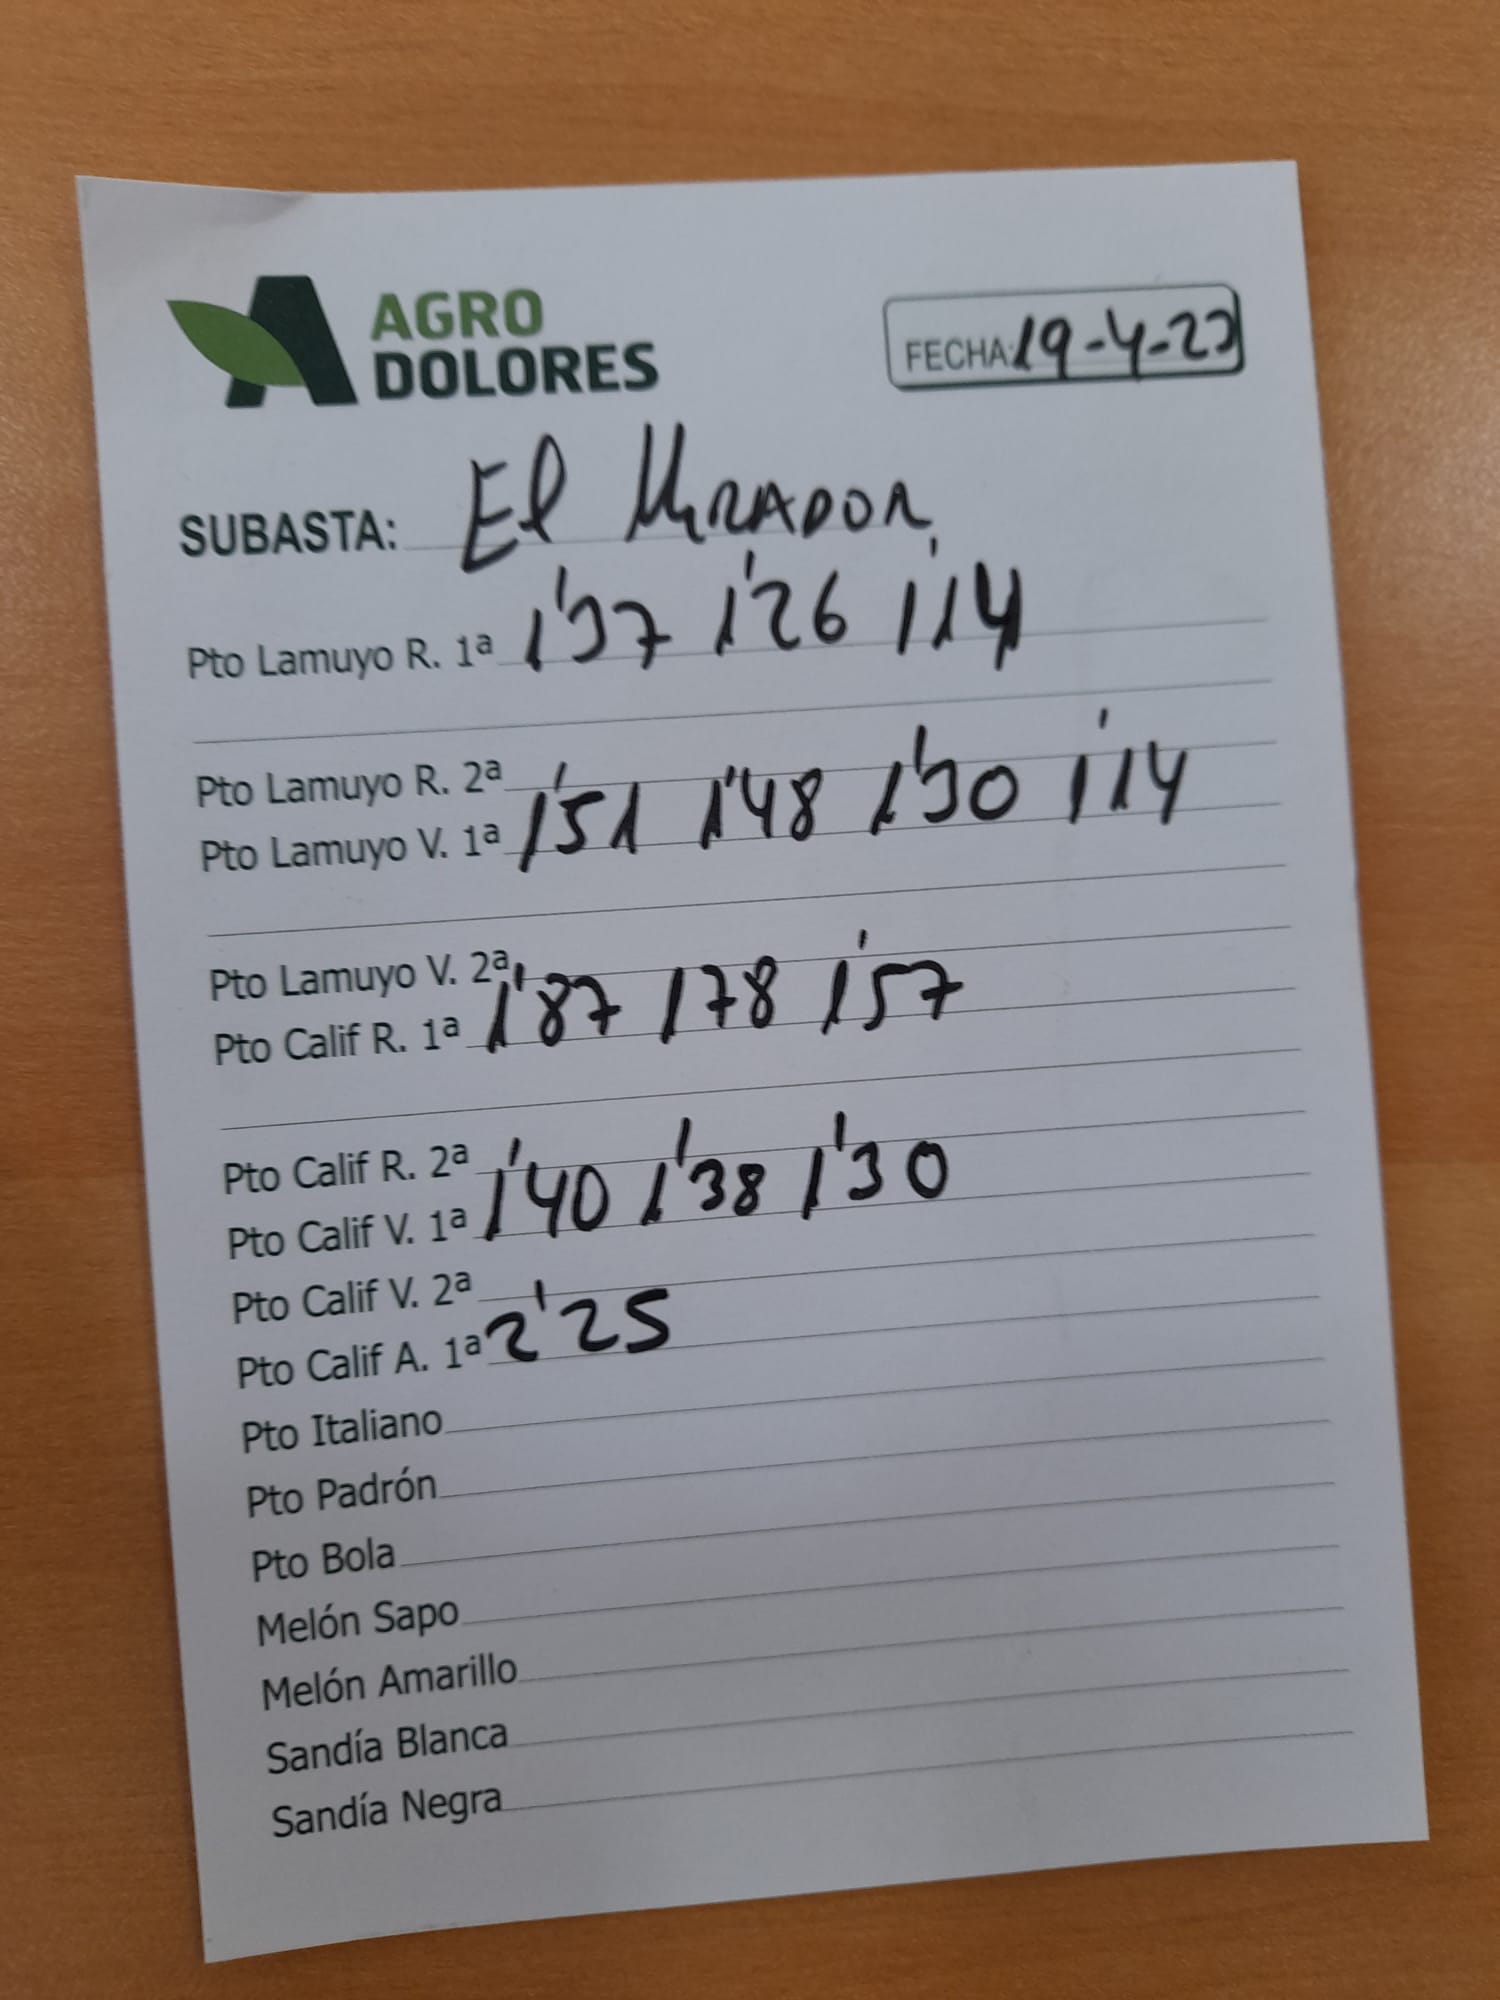 AGRO
DOLORES
FECHA: 19-4-23
SUBASTA: El MIRADOR
Pto Lamuyo R. 1ª 1'37 1'26 1'14
Pto Lamuyo R. 2ª
Pto Lamuyo V. 1ª 1'51 1'48 1'30 1'14
Pto Lamuyo V. 2ª
Pto Calif R. 1ª 1'87 178 1'57
Pto Calif R. 2ª
Pto Calif V. 1ª 1'40 1'38 1'30
Pto Calif V. 2ª
Pto Calif A. 1ª 2'25
Pto Italiano
Pto Padrón
Pto Bola
Melón Sapo
Melón Amarillo
Sandía Blanca
Sandía Negra